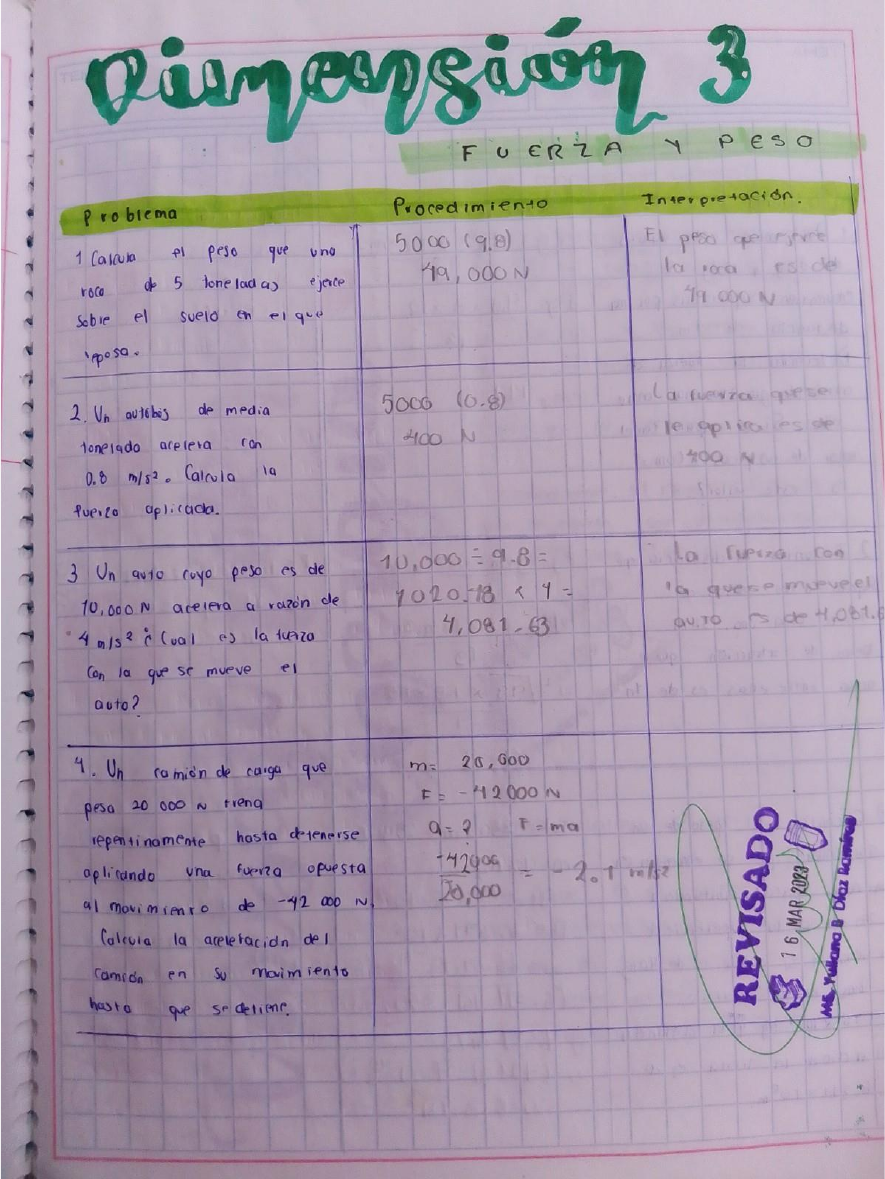 Dimensión 3
FUERZA Y PESO
Problema
Procedimiento
Interpretación.
1 Calcula el peso que una
roca de 5 toneladas ejerce
sobre el suelo en el que
reposa.
5000 (9.8)
49,000 N
El peso que ejerce
la roca es de
49 000 N
2. Un autobús de media
tonelada acelera con
0.8 m/s². Calcula la
fuerza aplicada.
5000 (0.8)
400 N
La fuerza que se
le aplica es de
400 N
3 Un auto cuyo peso es de
10,000 N acelera a razón de
4 m/s² ¿Cual es la fuerza
con la que se mueve el
auto?
10,000 ÷ 9.8 =
1020.18 x 4 =
4,081.63
La fuerza con
la que se mueve el
auto es de 4,081.6
4. Un camión de carga que
pesa 20 000 N frena
repentinamente hasta detenerse
aplicando una fuerza opuesta
al movimiento de -42 000 N.
Calcula la aceleración del
camión en su movimiento
hasta que se detiene.
m= 20,000
F= -42000 N
a= ? F=ma
-42000
20,000
= -2.1 m/s²
REVISADO
16 MAR 2023
Yuliana B Díaz Ramírez